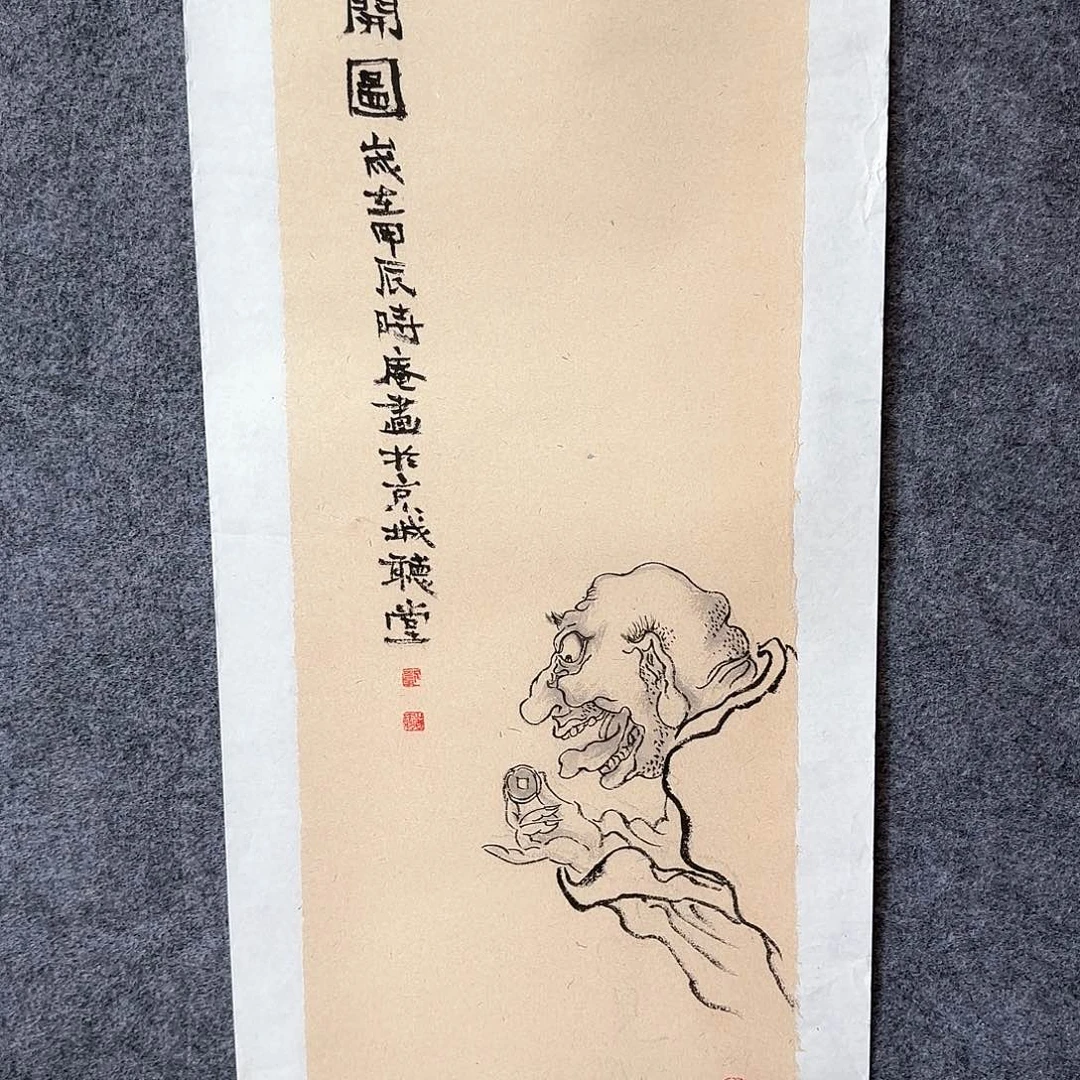 開圖歲在甲辰時庵畫於京城聽堂